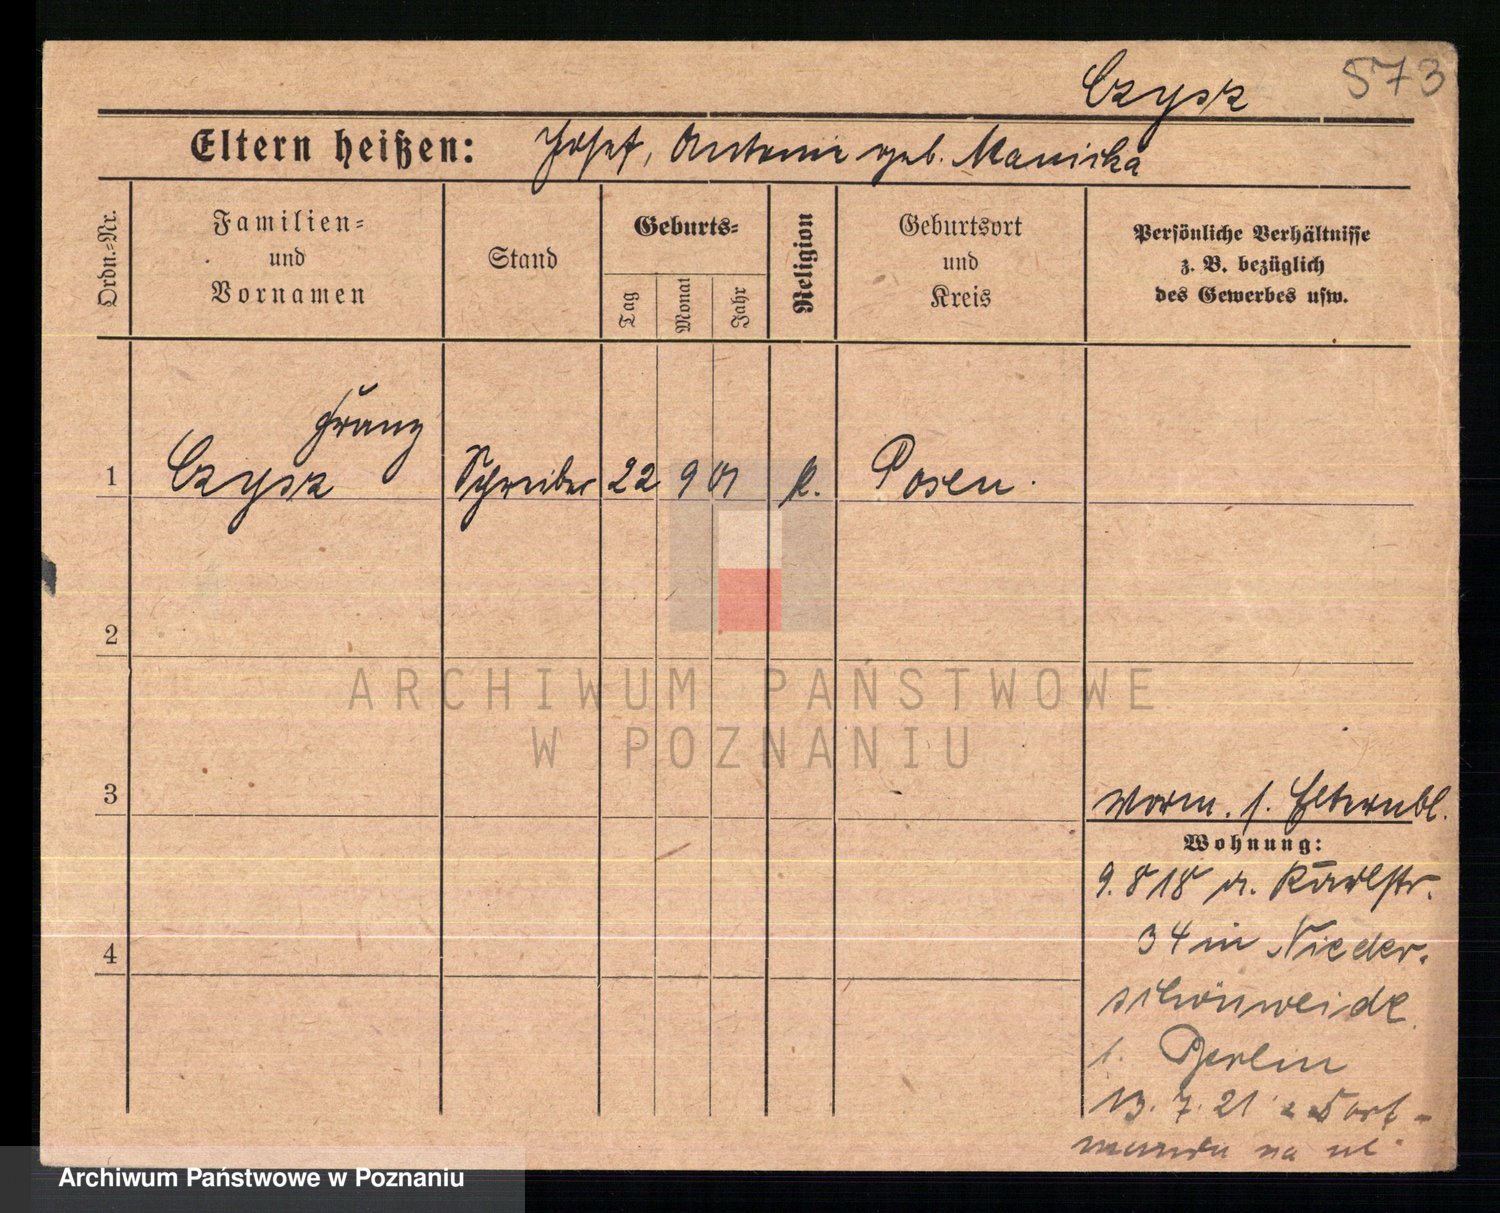 Czysz 573
Eltern heißen: Josef, Antonie geb. Manicka
Ordn.-Nr.
Familien-
und
Vornamen
Stand
Geburts-
Tag
Monat
Jahr
Religion
Geburtsort
und
Kreis
Persönliche Verhältnisse
z. B. bezüglich
des Gewerbes usw.
Franz
1 Czysz Schreiber 22 9 01 k. Posen.
2
ARCHIWUM PAŃSTWOWE
W POZNANIU
3
vorm. s. Elternbl.
Wohnung:
9. 8 18 n. Karlstr.
34 in Nieder-
schönweide
b. Berlin
4
13. 7. 21 z Dort-
mundu na ul
Archiwum Państwowe w Poznaniu